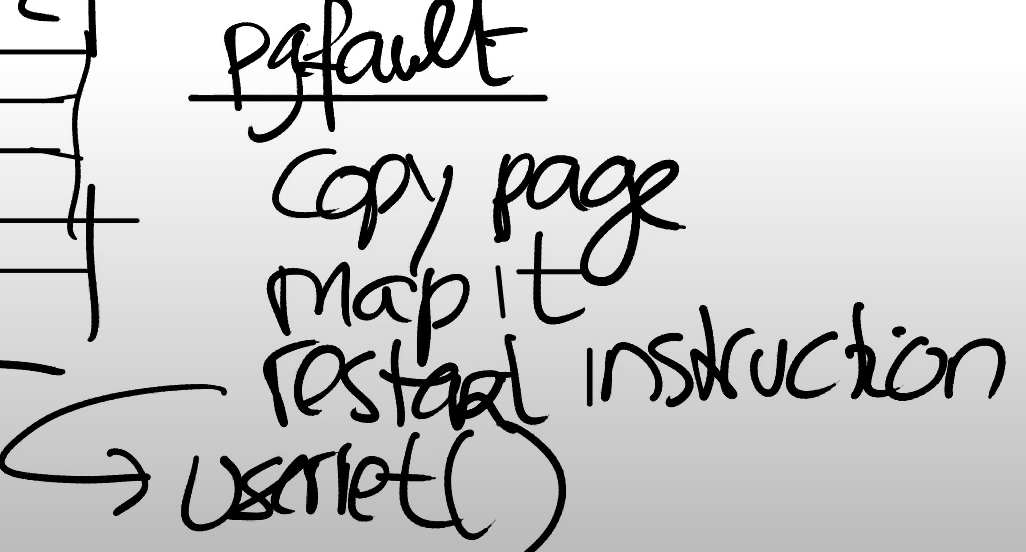 pgfault
copy page
map it
restart instruction
userret()